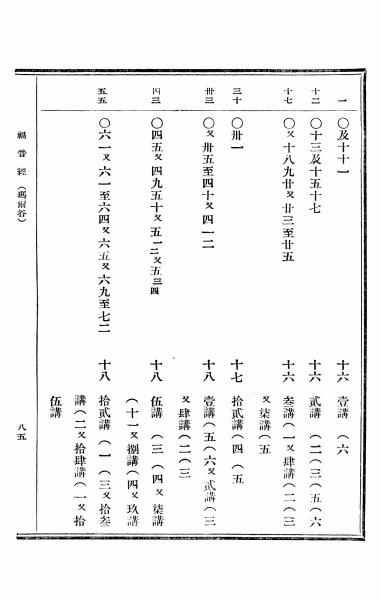 一　〇及十十一　十六　壹講（六
十二　〇十三及十五十七　十六　貳講（二（三（五（六
十七　〇又十八九廿又廿三至廿五　十六　叁講（一又肆講（二（三
又柒講（五
三十　〇卅一　十七　拾貳講（四（五
卅三　〇又卅五至四十又四一二　十八　壹講（五（六又貳講（三
又肆講（二（三
四三　〇四五又四九五十又五一二又五三四　十八　伍講（三（四又柒講
（十一又捌講（四又玖講
五五　〇六一又六一至六四又六五又六九至七二　十八　拾貳講（一（三又拾叁
講（二又拾肆講（一又拾
伍講
福音經（瑪爾谷）
八五